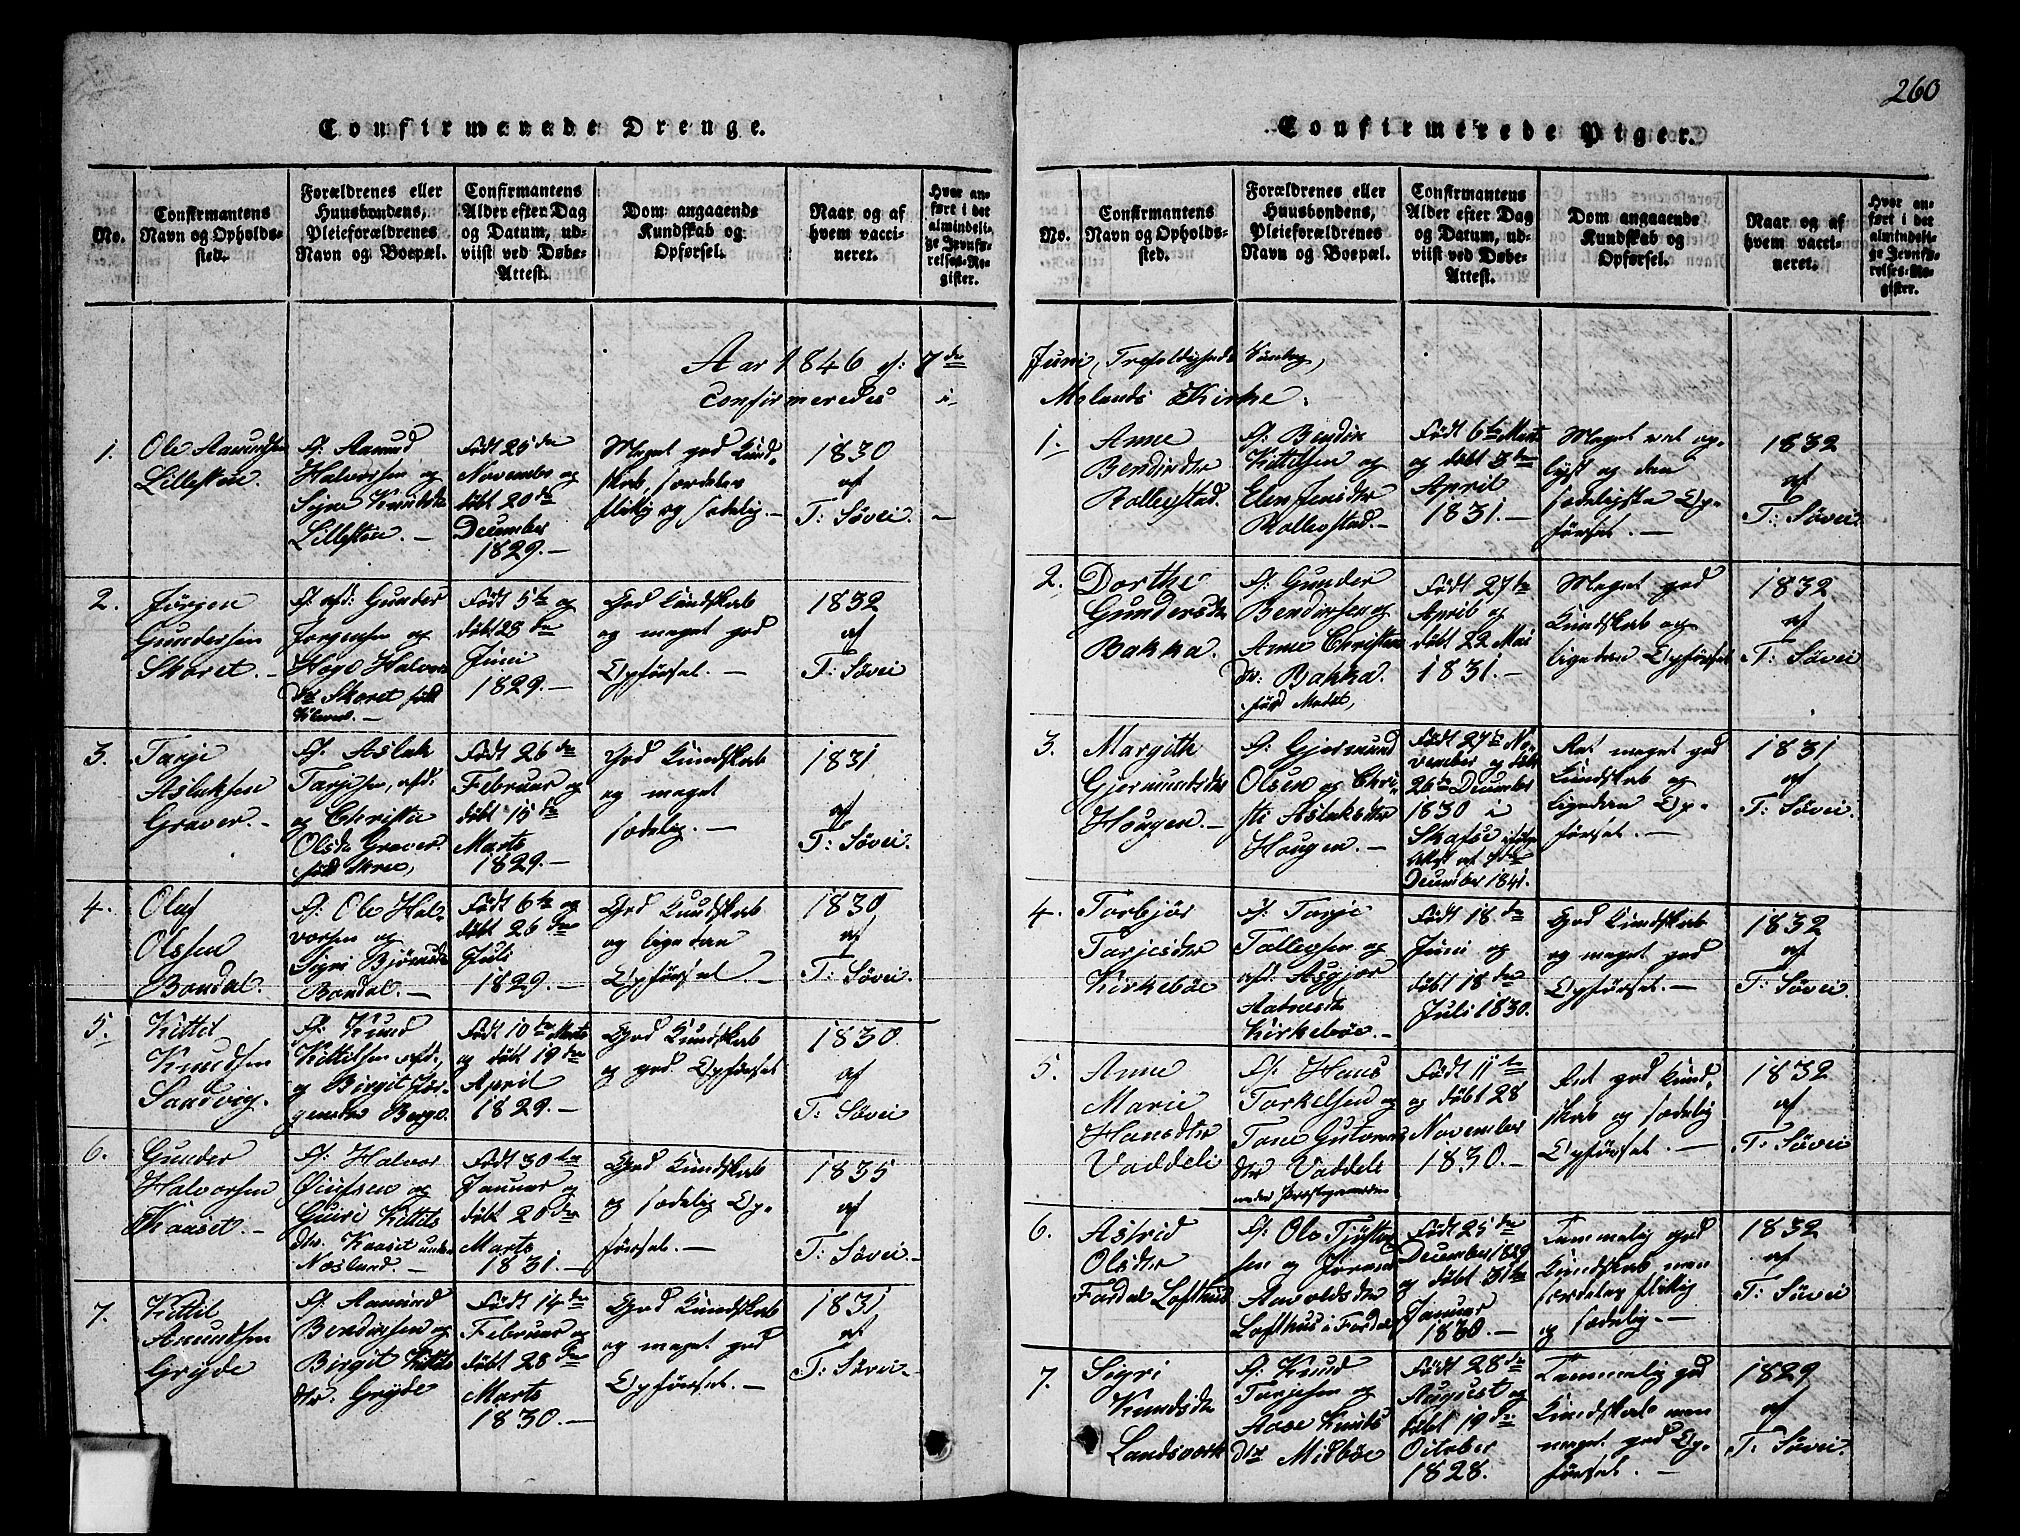 260
Confirmerede Drenge.
No.
Confirmantens
Navn og Opholds-
sted.
Forældrenes eller
Huusbondens,
Pleieforældrenes
Navn og Boepæl.
Confirmantens
Alder efter Dag
og Datum, ud-
viist ved Døbe-
Attest.
Dom angaaende
Kundskab og
Opførsel.
Naar og af
hvem vacci-
neret.
Hvor an-
ført i det
almindeli-
ge Jevnfø-
relses-Re-
gister.
Aar 1846 d: 7de
Confirmeredes i
1.
Ole Aamundsen
Lilleston.
F: Aamund
Halvorsen og
Signe Knudsdtr
Lilleston. -
Født 25de
November og
døbt 20de
December
1829. -
Meget god Kund-
skab, særdeles
flittig og sædelig. -
1830
af
T: Søvei. -
2.
Jørgen
Gundersen
Skoret. -
F: afd: Gunder
Jørgensen og
Halvor
dtr Skoret født
Født 5te og
døbt 28de
Juni
1829. -
God Kundskab
og meget god
Opførsel. -
1832
af
T: Søvei
3.
Tarje
Aslaksen
Graver. -
F: Aslak
Tarjesen, afd.
og Christie
Olsdtr Graver.
født
Født 26de
Februar og
døbt 15de
Marts
1829. -
God Kundskab
og meget
sædelig. -
1831
af
T: Søvei.
4.
Olaf
Olssen
Bondal.
F: Ole Hal-
vorsen og
Sigri Bjørnsdtr
Bondal. -
Født 6te og
døbt 26de
Juli
1829. -
God Kundskab
og ligedan
Opførsel. -
1830
af
T: Søvei.
5.
Kittil
Knudsen
Sandvig.
F: Knud
Kittilsen afd.
og Birgit Jør-
gensdtr Berge.
Født 10de Marts
og døbt 19de
April
1829. -
God Kundskab
og god Opførsel
1830.
af
T: Søvei
6.
Gunder
Halvorsen
Kaaset. -
F: Halvor
og
Guri Kittils
dtr. Kaaset under
Næslund. -
Født 30te
Januar og
døbt 20de
Marts
1831. -
God Kundskab
og sædelig Op-
førsel. -
1835
af
T: Søvei. -
7.
Kittil
Amundsen
Gryde
F: Aamund
Bendixsen og
Birgit Kittils
dtr. Gryde
Født 14de
Februar og
døbt 28de
Marts
1830. -
God Kundskab
og meget god
Opførsel. -
1831
af
T: Søvei. -
Confirmerede Piger.
No.
Confirmantens
Navn og Opholds-
sted.
Forældrenes eller
Huusbondens,
Pleieforældrenes
Navn og Boepæl.
Confirmantens
Alder efter Dag
og Datum, ud-
viist ved Døbe-
Attest.
Dom angaaende
Kundskab og
Opførsel.
Naar og af
hvem vacci-
neret.
Hvor an-
ført i det
almindeli-
ge Jevnfø-
relses-Re-
gister.
Juni, Trefoldigheds Søndag,
Molands Kirke.
1.
Anne
Bendixdtr
Rollegstad.
F: Bendix
Kittilsen og
Elen Jensdtr
Rollegstad. -
Født 6te Marts
og døbt 3de
April
1831. -
Meget vel op-
lyst og den
sædeligste Op-
førsel. -
1832
af
T: Søvei.
2.
Dorthe
Gundersdtr
Bakka.
F: Gunder
Bendixsen og
Anne Christens
dtr. Bakka.
Født 27de
April og
døbt 22 Mai
1831. -
Meget god
Kundskab og
ligedan Opførsel
1832
af
T: Søvei
3.
Margith
Gjermundsdtr
Hougen. -
F: Gjermund
Olsen og Chri-
sti Aslaksdtr
Hougen. -
Født 27de No-
vember og døbt
26de December
1830 i
Skafse ifølge
Attest af 7de
December 1841.
Ret meget god
Kundskab og
ligedan Op-
førsel. -
1831
af
T: Søvei.
4.
Torbjør
Tarjesdtr
Kirkebøe
F: Tarje
Tallegsen og
afd. Asgjør
Aamunds
Kirkebøe. -
Født 18de
Juni og
døbt 18de
Juli 1830.
God Kundskab
og meget god
Opførsel. -
1832
af
T: Søvei.
5.
Anne
Marie
Hansdtr
Vaddeli
F: Hans
Torkelsen og
Tone Gutorms
dtr Vaddeli
under Præstegaarden
Født 11te
og døbt 28
November
1830. -
Ret god Kund-
skab og sædelig
Opførsel. -
1832
af
T: Søvei
6.
Astrid
Olsdtr
Fardal Lofthus
F: Ole Tjøstuv
sen og Jørann
Aavoldsdtr
Lofthus i Fardal
Født 25de
December 1829
og døbt 31te
Januar
1830. -
Temmelig god
Kundskab men
særdeles flittig
og sædelig. -
1832
af
T: Søvei
7.
Sigri
Knudsdtr
Landsværk
F: Knud
Tarjesen og
Aase Knuds
dtr Midbøe
Født 28de
August og
døbt 19de
October
1828.
Temmelig god
Kundskab men
meget god Op-
førsel. -
1829
af
T: Søvei.